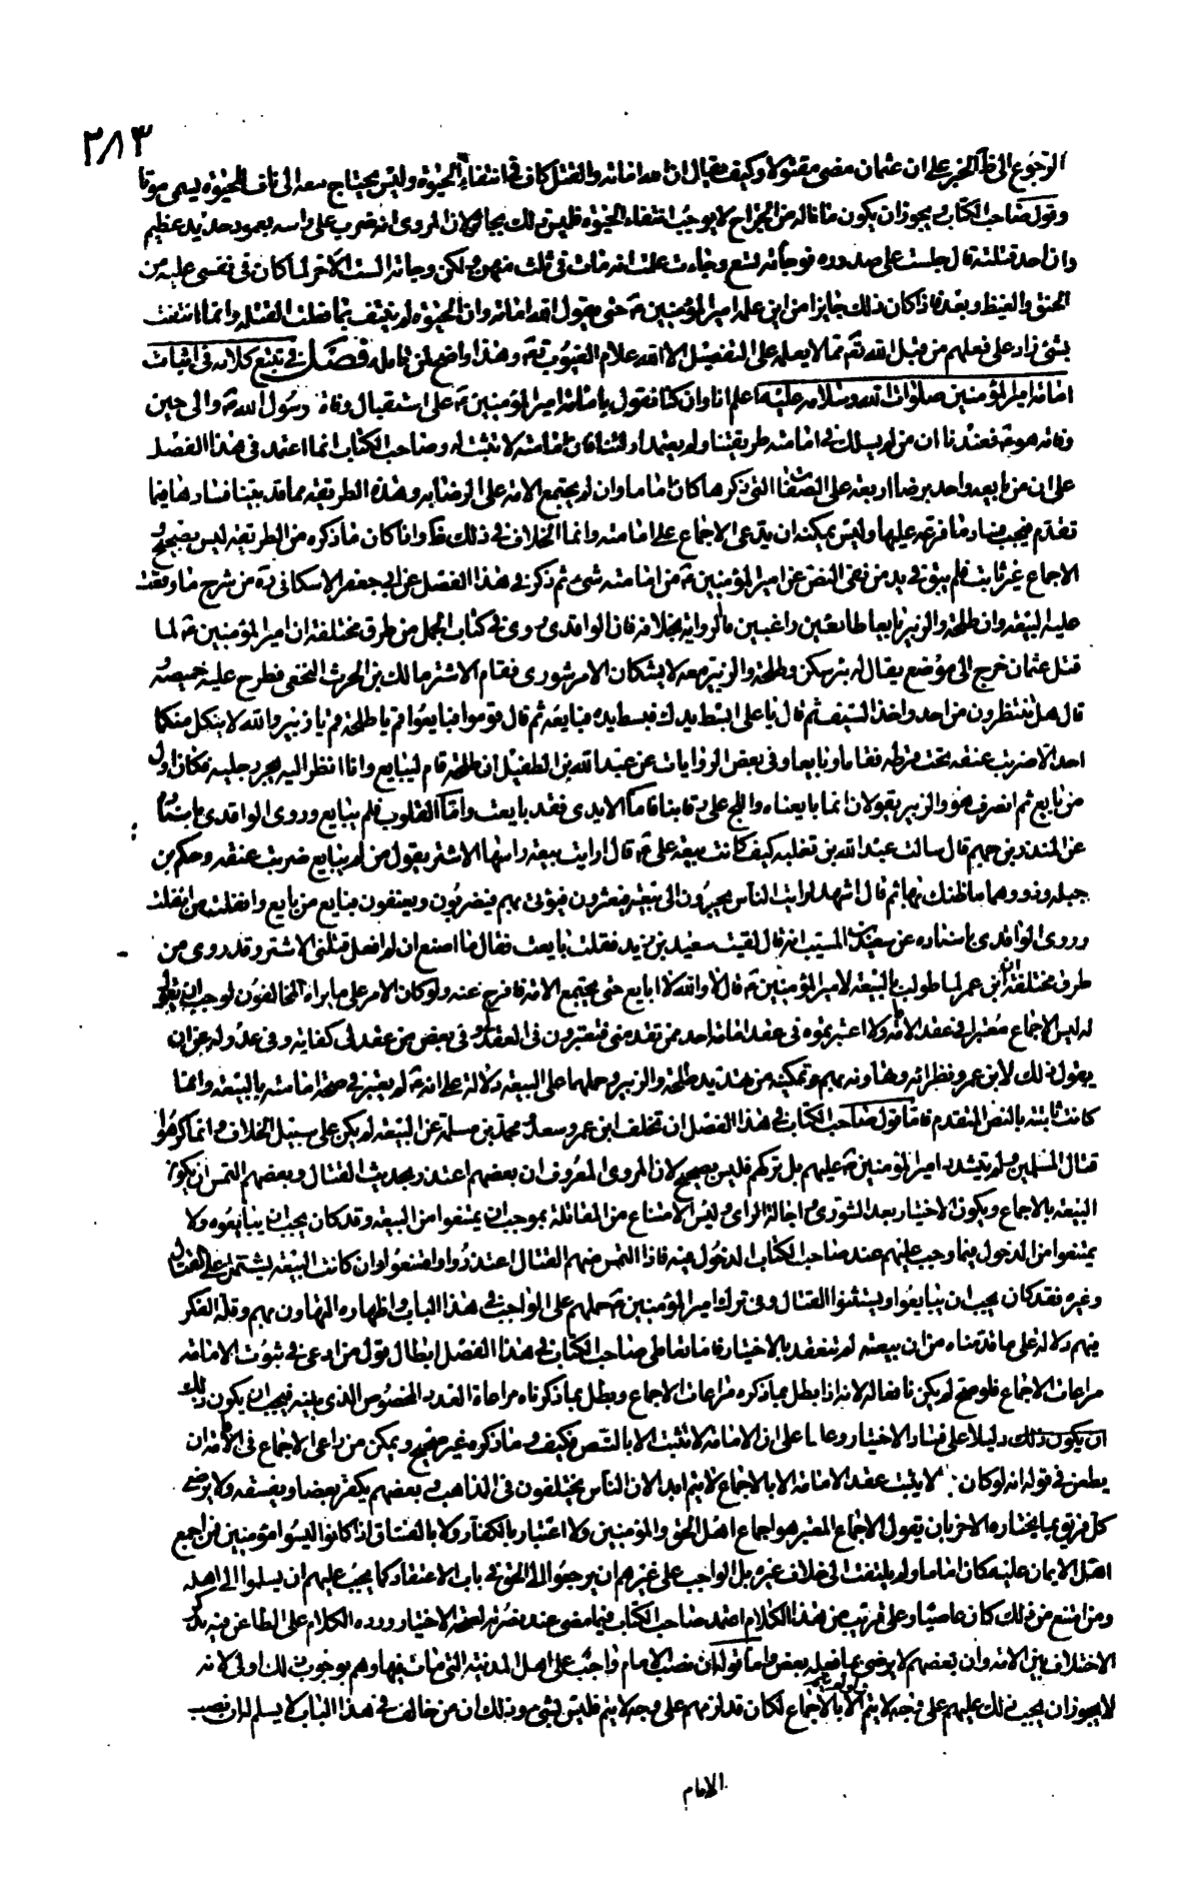 ٢٨٣
الرجوع الى ظاهر الخبر على ان عثمان مضى مقتولا وكيف يقال ان الله اماته والقتل كاف فى انتفاء الحيوة وليس يحتاج معه الى ناف للحيوة يسمى موتا
وقول صاحب الكتاب يجوز ان يكون ما ناله من الجراح لا يوجب انتفاء الحيوة فليس ذلك بجايز لان المروى انه ضرب على راسه بعمود حديد عظيم
وان احد قتلته قال جلست على صدره فوجأته تسع وجاءت علمت انه مات فى ثلث منهن ولكن وجأته الست الاخر لما كان فى نفسى عليه من
الحنق والغيظ وبعد فاذا كان ذلك جايزا من اين علمه امير المؤمنين ع حتى يقول ان الله اماته وان الحيوة لم ينتف بما فعلت القتلة وانما انتفت
بشئ زاد على فعلهم من قبل الله تعم مما لا يعلمه على التفصيل الا الله علام الغيوب تعم وهذا واضح لمن تامله فصل فى تتبع كلامه فى اثبات
امامة امير المؤمنين صلوات الله وسلامه عليه اعلم انا وان كنا نقول بامامة امير المؤمنين ع على استقبال وفاة رسول الله ص والى حين
وفاته هو ع فعندنا ان من لم يسلك فى امامته طريقتنا ولم يعتمد ادلتنا فان امامته لا تثبت له وصاحب الكتاب انما اعتمد فى هذا الفصل
على ان من بايعه واحد برضا اربعة على الصفات التى ذكرها كان اماما وان لم يجتمع الامة على الرضا به وهذه الطريقة مما قد بينا فسادها فيما
تقدم فيجب فساد ما فرعه عليها وليس يمكنه ان يدعى الاجماع على امامته وانما الخلاف فى ذلك ظ واذا كان ما ذكره من الطريقة ليس بصحيح و
الاجماع غير ثابت فلم يبق فى يد من نفى النص عن امير المؤمنين ع من امامته شئ ثم ذكر فى هذا الفصل عن ابى جعفر الاسكافى ره من شرح ما وقعت
عليه البيعة وان طلحة والزبير بايعا طائعين راغبين فالرواية بخلافه فان الواقدى روى فى كتاب الجمل من طرق مختلفة ان امير المؤمنين ع لما
قتل عثمان خرج الى موضع يقال له بئر سكن وطلحة والزبير معه لا يشكان الامر شورى فقام الاشتر مالك بن الحرث النخعى فطرح عليه خميصة
قال هل تنتظرون من احد واخذ السيف ثم قال يا على ابسط يدك فبسط يده فبايعه ثم قال قوموا فبايعوا قم يا طلحة قم يا زبير والله لا ينكل منكما
احد الا ضربت عنقه تحت قرطه فقاما وبايعا وفى بعض الروايات عن عبد الله بن الطفيل ان طلحة قام ليبايع وانا انظر اليه يجر رجليه فكان اول
من بايع ثم انصرف هو والزبير يقولان انما بايعناه واللج على رقابنا فاما الايدى فقد بايعت واما القلوب فلم يبايع وروى الواقدى باسناده
عن المنذر بن جهم قال سالت عبد الله بن ثعلبة كيف كانت بيعة على ع قال رايت بيعة راسها الاشتر يقول من لم يبايع ضربت عنقه وحكم بن
جبلة وذووهما ما ظنك بهما ثم قال اشهد لرايت الناس يحبرون الى بيعته فيعثرون فيؤتى بهم فيضربون ويعنفون فبايع من بايع وانفلت من انفلت
وروى الواقدى باسناده عن سعيد بن المسيب انه قال لقيت سعيد بن زيد فقلت بايعت فقال ما اصنع ان لم افعل قتلنى الاشتر وقد روى من
طرق مختلفة ان ابن عمر لما طولب بالبيعة لامير المؤمنين ع قال لا والله لا ابايع حتى يجتمع الامة فافرج عنه ولو كان الامر على ما يراه المخالفون لوجب ان يقول
له ليس الاجماع معتبرا فى عقد الامامة ولا اعتبرتموه فى عقد امامة احد ممن تقدمنى فتعتبرون فى العقد لى وفى بعض من عقد لى كفاية وفى عدوله عن ان
يقول ذلك لابن عمر ونظرائه وتهاونه بهم وتمكينه من تهديد طلحة والزبير وحملهما على البيعة دلالة على انه ع لم يعتبر فى صحة امامته بالبيعة وانما
كانت ثابتة بالنص المتقدم فاما قول صاحب الكتاب فى هذا الفصل ان تخلف ابن عمر وسعد ومحمد بن مسلمة عن البيعة لم يكن على سبيل الخلاف وانما كرهوا
قتال المسلمين ولم يتشدد امير المؤمنين ع عليهم بل تركهم فليس بصحيح لان المروى المعروف ان بعضهم اعتذر بحديث القتال وبعضهم التمس ان يكون
البيعة بالاجماع ويكون الاختيار بعد الشورى واجالة الراى وليس الامتناع من المقاتلة بموجب ان يمتنعوا من البيعة وقد كان يجب ان يبايعوه ولا
يمتنعوا من الدخول فيما وجب عليهم عند صاحب الكتاب الدخول فيه فاذا التمس منهم القتال اعتذروا وامتنعوا وان كانت البيعة ليشتمل على القتال
وغيره فقد كان يجب ان يبايعوا ويستثنوا القتال وفى ترك امير المؤمنين ع حملهم على الواجب فى هذا الباب واظهاره التهاون بهم وقلة الفكر
فيهم دلالة على ما قدمناه من ان بيعته لم تنعقد بالاختيار فاما تعاطى صاحب الكتاب فى هذا الفصل ابطال قول من ادعى فى ثبوت الامامة
مراعات الاجماع فلو صح لم يكن نافعا له لانه اذا بطل بما ذكره مراعات الاجماع وبطل بما ذكرناه مراعاة العدد المخصوص الذى بينه فيجب ان يكون ذلك
ان يكون ذلك دليلا على فساد الاختيار وعلما على ان الامامة لا تثبت الا بالنص فكيف وما ذكره غير صحيح ويمكن من راعى الاجماع فى الامامة ان
يطعن فى قوله انه لو كان لا يثبت عقد الامامة الا بالاجماع لا يتم ابدا لان الناس يختلفون فى المذاهب وبعضهم يكفر بعضا ويفسقه ولا يرضى
كل فريق بما يختاره الاخر بان يقول الاجماع المعتبر هو اجماع اهل الحق والمؤمنين ولا اعتبار بالكفار ولا بالفساق اذا كانوا ليسوا مؤمنين فمن اجمع
اهل الايمان عليه كان اماما ولم يلتفت الى خلاف غيرهم بل الواجب على غيرهم ان يرجعوا الى الحق فى باب الاعتقاد كما يجب عليهم ان يسلموا الى اهله
ومن امتنع من ذلك كان عاصيا وعلى قريب من هذا الكلام اعتمد صاحب الكتاب فيما مضى عند نصرته لصحة الاختيار ورده الكلام على الطاعن فيه بذكر
الاختلاف بين الامة وان بعضهم لا يرضى بما فعله بعض واما قوله ان نصب الامام واجب على اهل المدينة التى مات فيها وهم بوجوب ذلك اولى لانه
لا يجوز ان يجب ذلك عليهم على وجه لا يتم ولو لم يتم الا بالاجماع لكان قد لزمهم على وجه لا يتم فليس بشئ وذلك ان من خالف فى هذا الباب لا يسلم له ان نصب
الامام